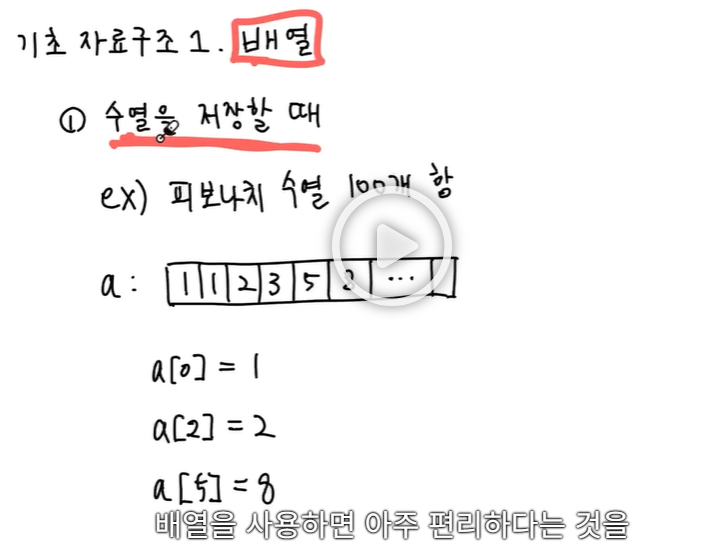 기초 자료구조 1. 배열
① 수열을 저장할 때
ex) 피보나치 수열 100개 항
a: 1 1 2 3 5 8 ...
a[0] = 1
a[2] = 2
a[5] = 8
배열을 사용하면 아주 편리하다는 것을